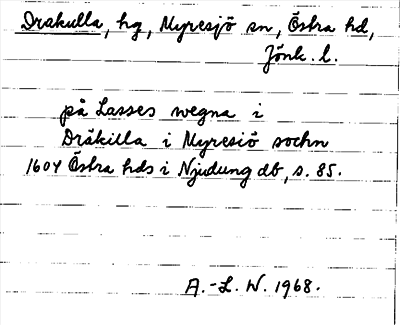 Drakulla, hg, Myresjö sn, Östra hd,
Jönk. l.
på Lasses wegna i
Dråkilla i Myresiö sochn
1604 Östra hds i Njudung db, s. 85.
A.-L. W. 1968.